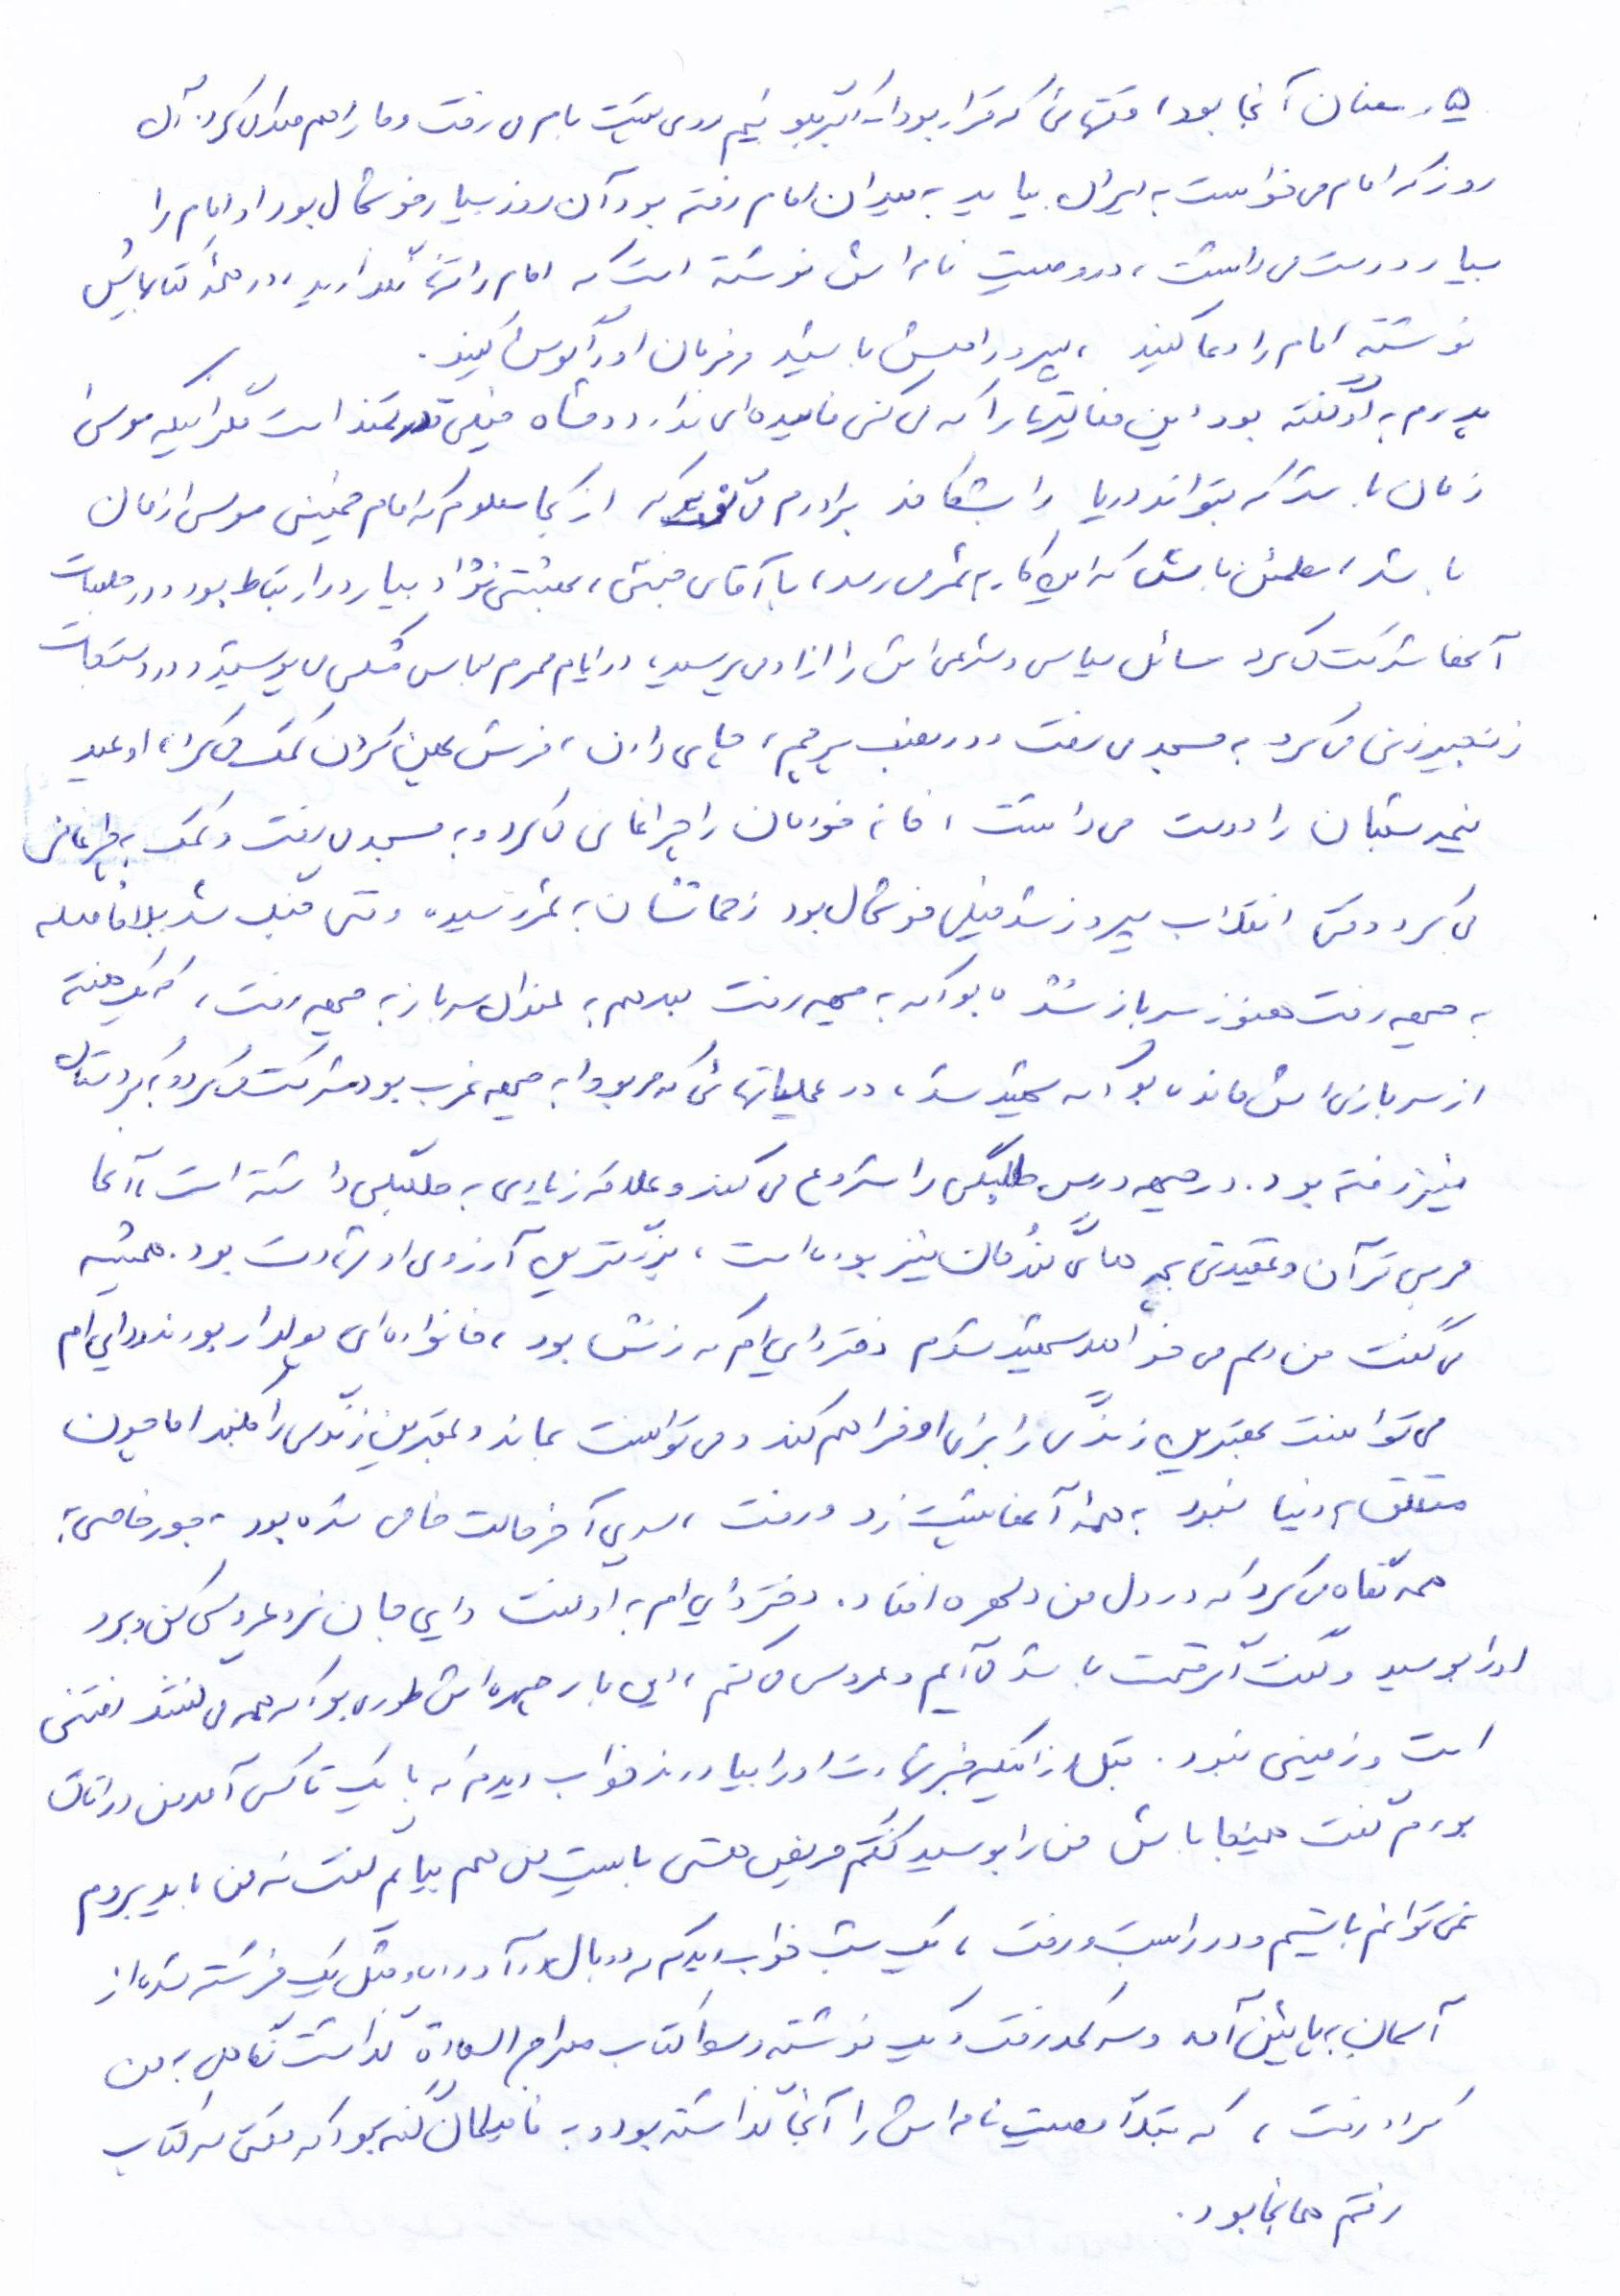 ۵ رمضان آنجا بود، وقتهائی که قرار بود الله اکبر بگوئیم روی پشت بام می رفت و ما را هم صدا می کرد. آن
روز که امام می خواست به ایران بیاید به میدان امام رفته بود آن روز بسیار خوشحال بود او امام را
بسیار دوست می داشت، در وصیت نامه اش نوشته است که امام را تنها نگذارید، در همه کتابهایش
نوشته امام را دعا کنید، پیرو راهش باشید و فرمان او را گوش کنید.
پدرم به او گفته بود این فعالیتها را که می کنی فایده ای ندارد و شاه خیلی قدرتمند است مگر اینکه موسی
زمان باشد که بتواند دریا را بشکافد برادرم می گوید که از کجا معلوم که امام خمینی موسی زمان
باشد، مطمئن باش که این کار به ثمر می رسد، با آقای بهشتی نژاد بسیار در ارتباط بود و در جلسات
آنها شرکت می کرد مسائل سیاسی و شرعی اش را از او می پرسید، در ایام محرم لباس مشکی می پوشید و در دستجات
زنجیرزنی می کرد به مسجد می رفت و در نصب پرچم، چای دادن، فرش پهن کردن کمک می کرد، او عید
نیمه شعبان را دوست می داشت، خانه خودمان را چراغانی می کرد و به مسجد می رفت و کمک به چراغانی
می کرد وقتی انقلاب پیروز شد خیلی خوشحال بود زحماتشان به ثمر رسیده وقتی جنگ شد بلافاصله
به جبهه رفت هنوز سرباز نشده بود که به جبهه رفت بعد هم به عنوان سرباز به جبهه رفت، که یک هفته
از سربازی اش مانده بود که شهید شد، در عملیاتهائی که مربوط به جبهه غرب بود شرکت می کرد و به کردستان
نیز رفته بود. در جبهه درس طلبگی را شروع می کند و علاقه زیادی به طلبگی داشته است، آنجا
مربی قرآن و عقیدتی بچه های گردان نیز بوده است، بزرگترین آرزوی او شهادت بود. همیشه
می گفت من دلم می خواهد شهید شوم دختر دایی ام که زنش بود، خانواده ای پولدار بودند و دایی ام
می توانست بهترین زندگی را برای او فراهم کند و می توانست بماند و بهترین زندگی را بکند اما چون
متعلق به دنیا نبود به همه آنها پشت زد و رفت، سری آخر حالت خاصی شده بود، جور خاصی به
همه نگاه می کرد که در دل من دلهره افتاد. دختر دایی ام به او گفت دایی جان نرو عروسی کن و برو
او را بوسید و گفت اگر قسمت باشد می آیم و عروسی می کنم، این بار چهره اش طوری بود که همه می گفتند رفتنی
است و زمینی نبود. قبل از اینکه خبر شهادت او را بیاورند خواب دیدم که با یک تاکسی آمد من در اتاق
بودم گفت همینجا باش من را بوسید گفتم مریض هستی بایست من هم بیایم گفت نه من باید بروم
نمی توانم بایستم و در را بست و رفت، یک شب خواب دیدم که دو بال در آورده و مثل یک فرشته شده از
آسمان به پایین آمد و سر کمد رفت و یک نوشته وسط کتاب معراج السعادة گذاشت نگاهی به من
کرد و رفت، که بعداً وصیت نامه اش را آنجا گذاشته بود و به فامیلمان گفته بود که وقتی سر کتاب
رفتم همانجا بود.